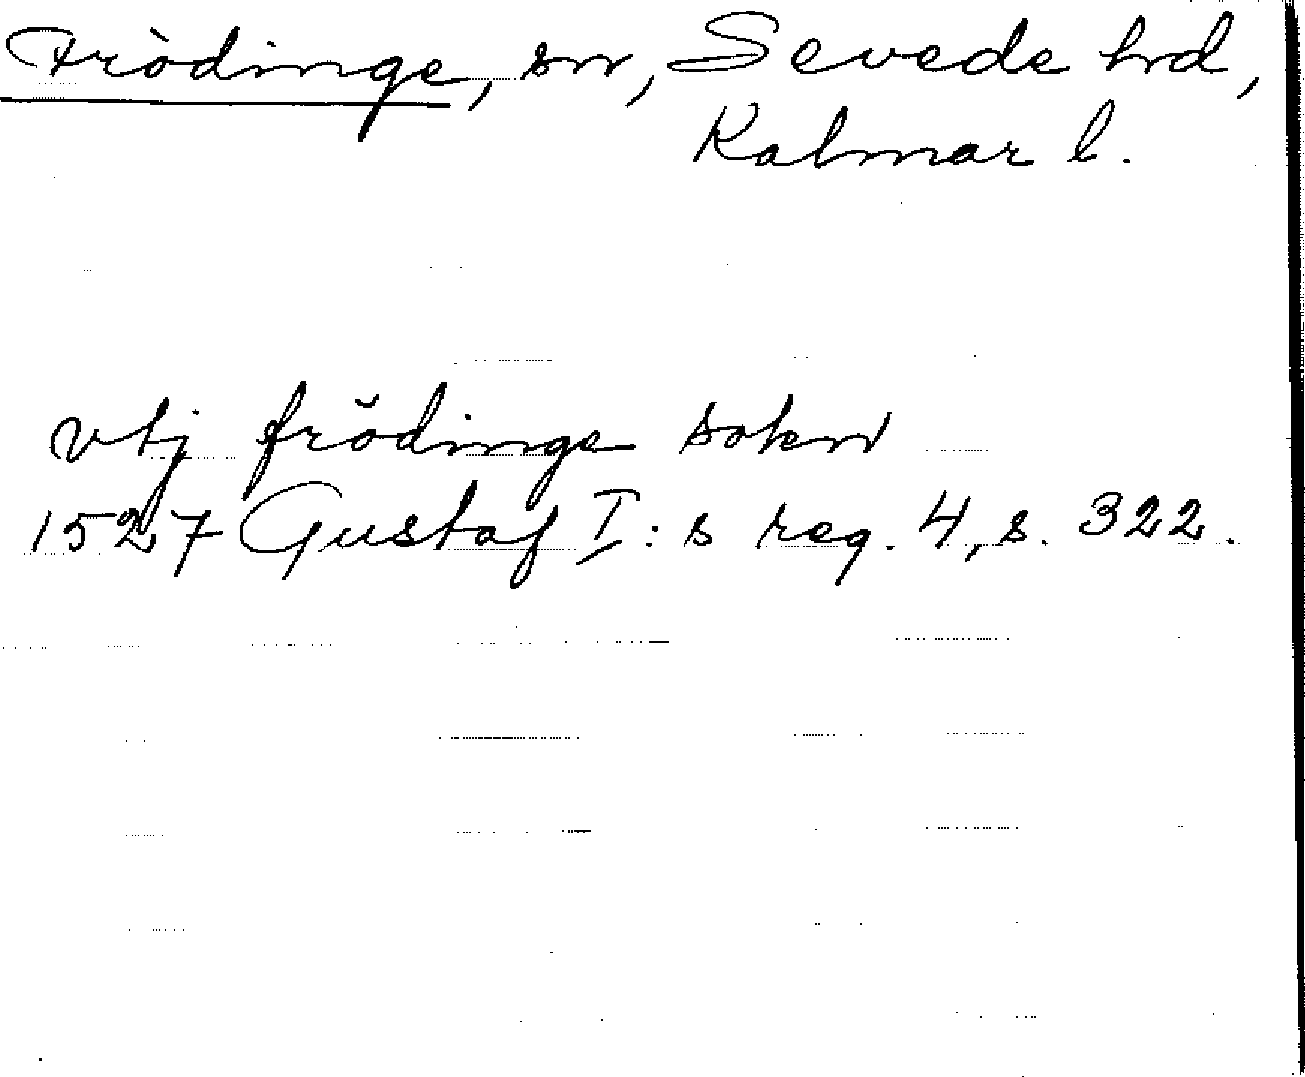 Frödinge, sn, Sevede hd,
Kalmar l.
vtj frödinge sokn
1527 Gustaf I:s reg. 4, s. 322.